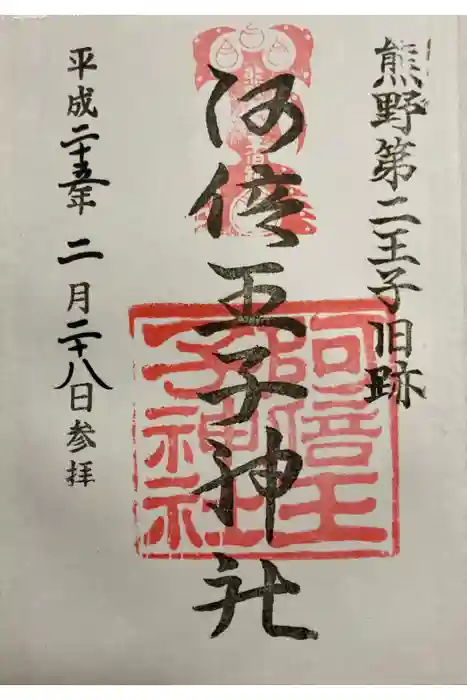 熊野第二王子旧跡
阿倍王子神社
阿倍王
子神社
平成二十五年二月二十八日参拝